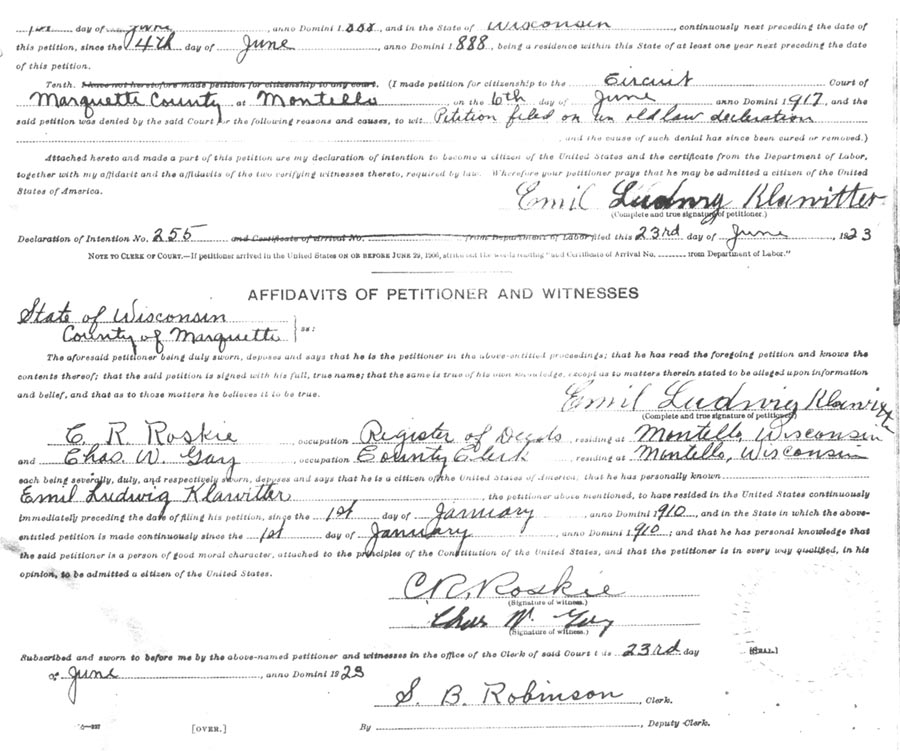 day of June, anno Domini 1888, and in the State of Wisconsin, continuously next preceding the date of
this petition, since the 14th day of June, anno Domini 1888, being a residence within this State of at least one year next preceding the date
of this petition.
Tenth. I have not heretofore made petition for citizenship to any court. (I made petition for citizenship to the Circuit Court of
Marquette County at Montello on the 6th day of June anno Domini 1917, and the
said petition was denied by the said Court for the following reasons and causes, to wit, Petition filed on an old law declaration
, and the cause of such denial has since been cured or removed.)
Attached hereto and made a part of this petition are my declaration of intention to become a citizen of the United States and the certificate from the Department of Labor,
together with my affidavit and the affidavits of the two verifying witnesses thereto, required by law. Wherefore your petitioner prays that he may be admitted a citizen of the United
States of America.
Emil Ludwig Klawitter
(Complete and true signature of petitioner.)
Declaration of Intention No. 255 and Certificate of Arrival No. from Department of Labor filed this 23rd day of June, 1923
NOTE TO CLERK OF COURT.—If petitioner arrived in the United States ON OR BEFORE JUNE 29, 1906, strike out the words reading "and Certificate of Arrival No. from Department of Labor."
AFFIDAVITS OF PETITIONER AND WITNESSES
State of Wisconsin
County of Marquette } ss:
The aforesaid petitioner being duly sworn, deposes and says that he is the petitioner in the above-entitled proceedings; that he has read the foregoing petition and knows the
contents thereof; that the said petition is signed with his full, true name; that the same is true of his own knowledge, except as to matters therein stated to be alleged upon information
and belief, and that as to those matters he believes it to be true.
Emil Ludwig Klawitter
(Complete and true signature of petitioner.)
C. R. Roskie, occupation Register of Deeds, residing at Montello, Wisconsin
and Chas. W. Gay, occupation County Clerk, residing at Montello, Wisconsin
each being severally, duly, and respectively sworn, deposes and says that he is a citizen of the United States of America; that he has personally known
Emil Ludwig Klawitter, the petitioner above mentioned, to have resided in the United States continuously
immediately preceding the date of filing his petition, since the 1st day of January, anno Domini 1910, and in the State in which the above-
entitled petition is made continuously since the 1st day of January, anno Domini 1910; and that he has personal knowledge that
the said petitioner is a person of good moral character, attached to the principles of the Constitution of the United States, and that the petitioner is in every way qualified, in his
opinion, to be admitted a citizen of the United States.
C. R. Roskie
(Signature of witness.)
Chas W. Gay
(Signature of witness.)
Subscribed and sworn to before me by the above-named petitioner and witnesses in the office of the Clerk of said Court this 23rd day
of June, anno Domini 1923
[SEAL.]
S. B. Robinson, Clerk.
[OVER.] By , Deputy Clerk.